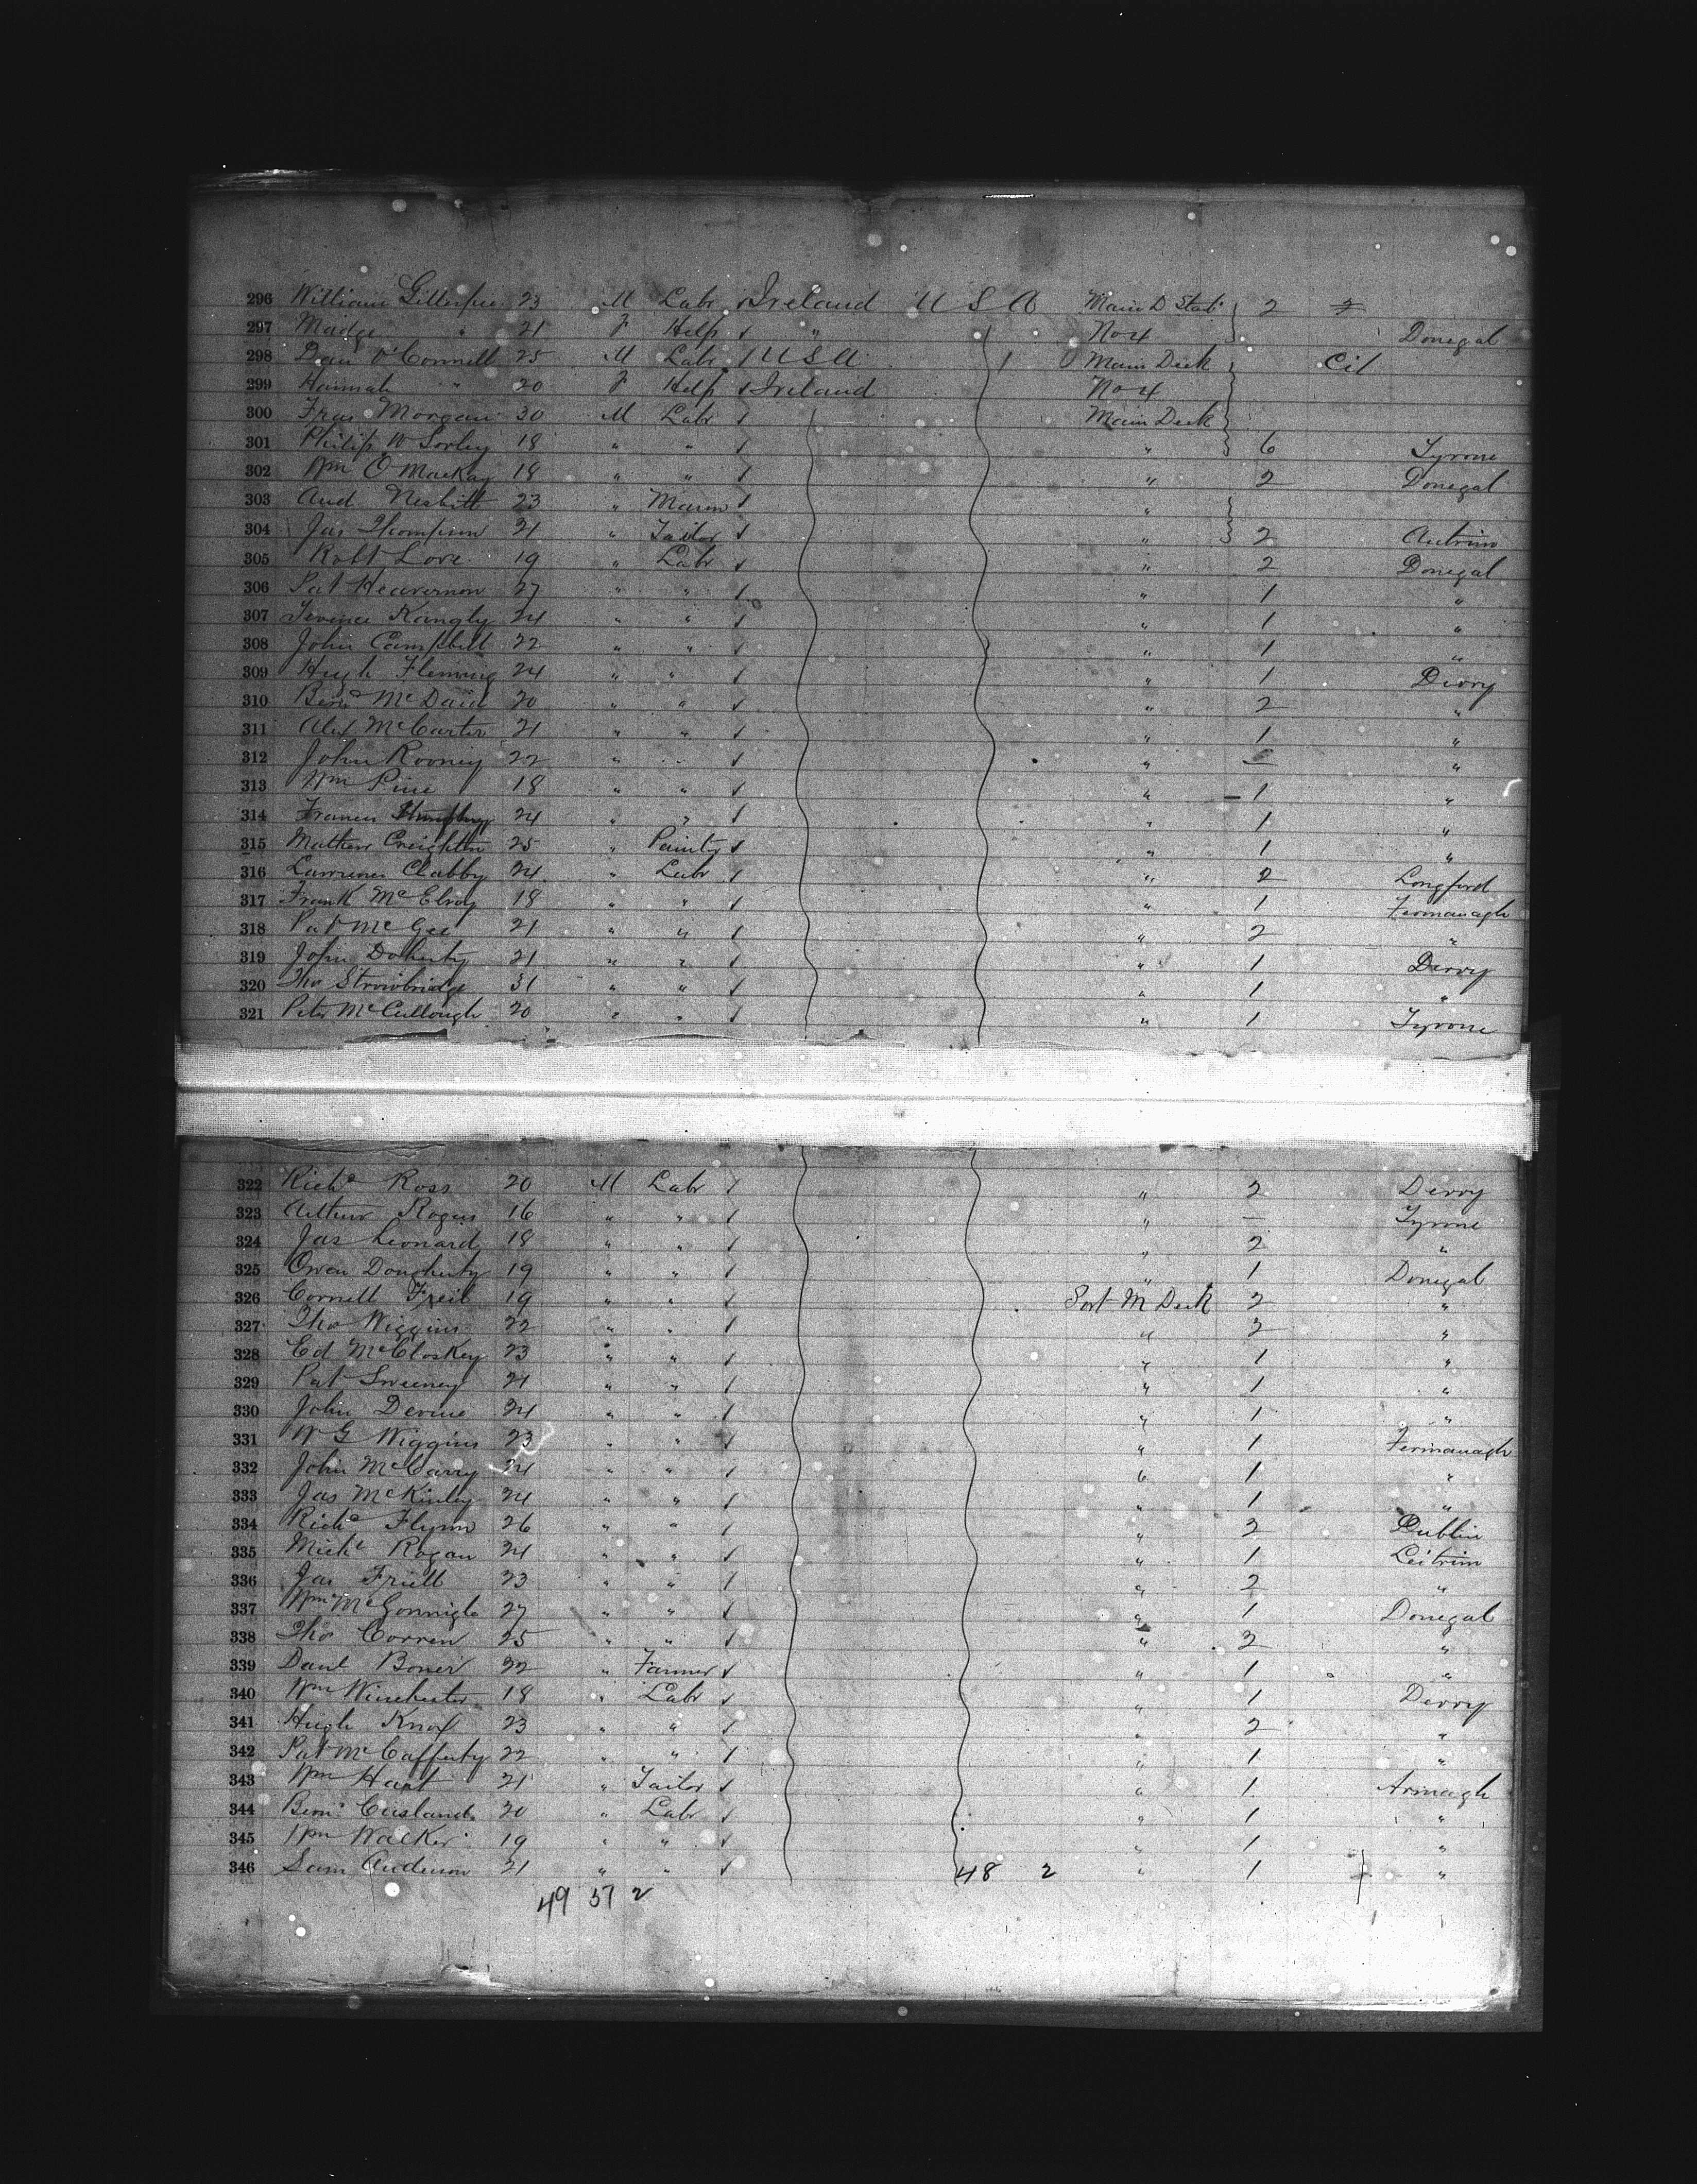 296 William Gillespie 23 M Labr Ireland U S A Main D Stab 2
297 Madge " 21 F Help " No 4 Donegal
298 Dan O'Connell 25 M Labr U S A 1 Main Deck Cit
299 Hannah " 20 F Help Ireland No 4
300 Fras Morgan 30 M Labr Main Deck
301 Philip Mc Sorley 18 " " " 6 Tyrone
302 Wm O Mackay 18 " " " 2 Donegal
303 And Nesbitt 23 " Mason "
304 Jas Thompson 21 " Tailor " 2 Antrim
305 Robt Love 19 " Labr " 2 Donegal
306 Pat Heavernon 27 " " " 1 "
307 Terence Kangly 24 " " " 1 "
308 John Campbell 22 " " " 1 "
309 Hugh Fleming 24 " " " 1 Derry
310 Bernd McDaid 20 " " " 2 "
311 Alex McCarter 21 " " " 1 "
312 John Rooney 22 " " " "
313 Wm Pine 18 " " " 1 "
314 Francis 24 " " " 1 "
315 Mathew Creighton 25 " Painter " 1 "
316 Lawrence Clabby 24 " Labr " 2 Longford
317 Frank McElroy 18 " " " 1 Fermanagh
318 Pat McGee 21 " " " 2 "
319 John Doherty 21 " " " 1 Derry
320 Tho Strowbridge 31 " " " 1 "
321 Peter McCullough 20 " " " 1 Tyrone
322 Richd Ross 20 M Labr " 2 Derry
323 Arthur Rogers 16 " " " — Tyrone
324 Jas Leonard 18 " " " 2 "
325 Owen Dougherty 19 " " " 1 Donegal
326 Cornell Freil 19 " " Port M Deck 2 "
327 Tho Wiggins 22 " " " 2 "
328 Ed McCloskey 23 " " " 1 "
329 Pat Sweeney 21 " " " 1 "
330 John Devine 24 " " " 1 "
331 W G Wiggins 23 " " " 1 Fermanagh
332 John McGarry 24 " " " 1 "
333 Jas McKinley 24 " " " 1 "
334 Richd Flynn 26 " " " 2 Dublin
335 Michl Rogan 24 " " " 1 Leitrim
336 Jas Friell 23 " " " 2 "
337 Wm McGonnigle 27 " " " 1 Donegal
338 Tho Corren 25 " " " 2 "
339 Danl Boner 22 " Farmer " 1 "
340 Wm Winchester 18 " Labr " 1 Derry
341 Hugh Knox 23 " " " 2 "
342 Pat McCafferty 22 " " " 1 "
343 Wm Hart 21 " Tailor " 1 Armagh
344 Benj Causland 20 " Labr " 1 "
345 Wm Walker 19 " " " 1 "
346 Sam Anderson 21 " " 48 2 " 1 "
49 57 2